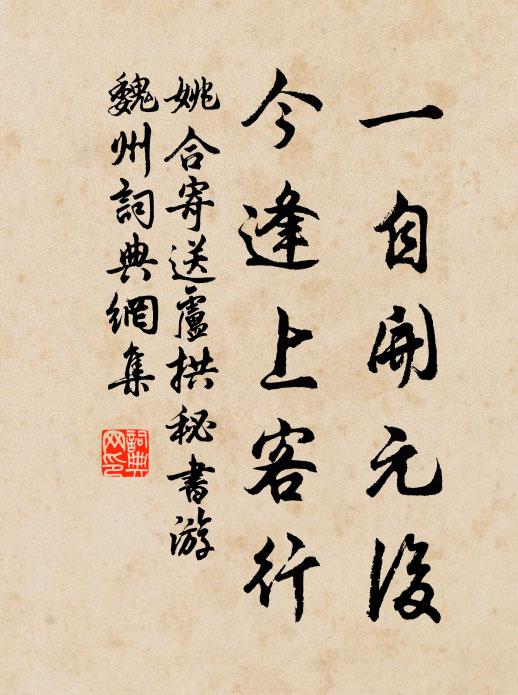 一自開元後
今逢上客行
姚合寄送盧拱秘書游
魏州詞典網集
詞典網印